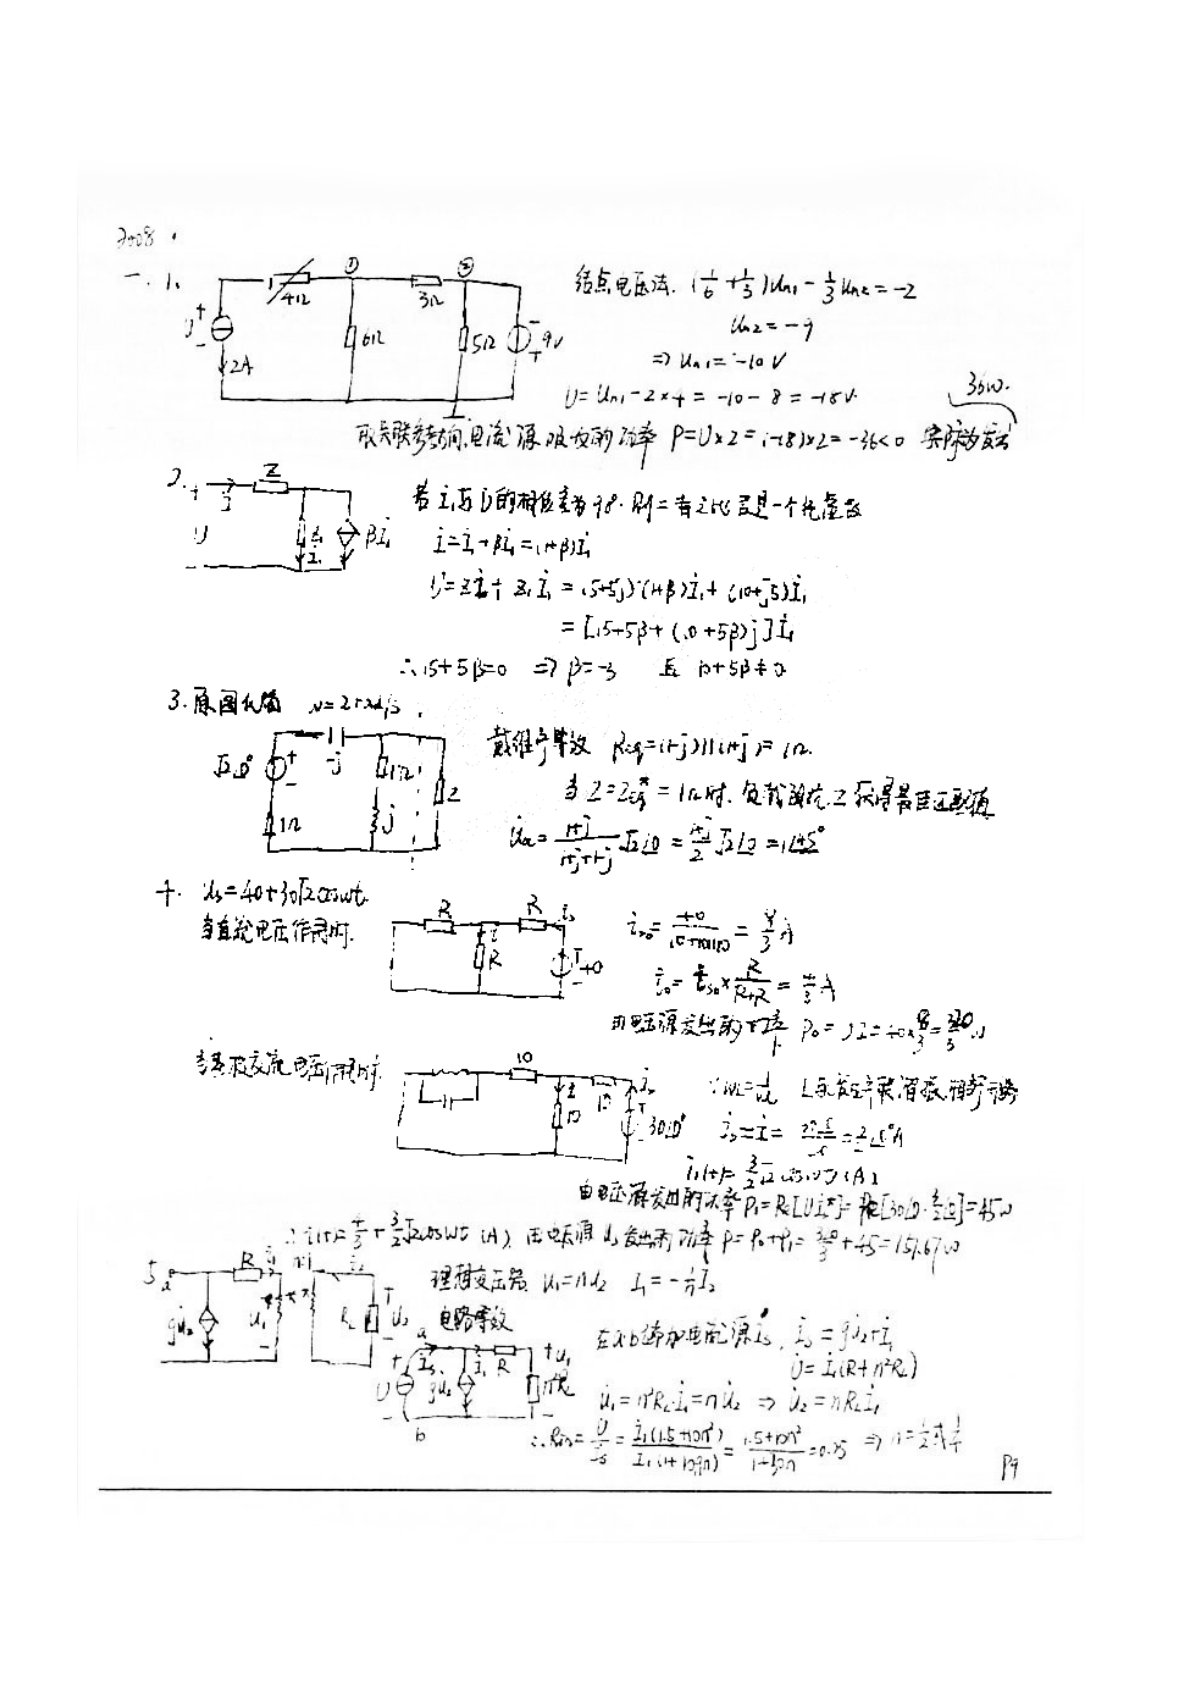 2008.
一. 1.
① ②
4Ω 3Ω
U + - 2A 6Ω 5Ω - 9V +
结点电压法. (1/6+1/3)Un1 - 1/3 Un2 = -2
Un2 = -9
⇒ Un1 = -10V
U = Un1 - 2×4 = -10 - 8 = -18V.
36W.
取关联参考方向,电流源吸收的功率 P=U×2=(-18)×2=-36<0 实际为发出
2. + İ Z
U̇ Z1 İ1 βİ1 -
若İ1与U̇的相位差为90°.
İ=İ1+βİ1=(1+β)İ1
U̇=Zİ+Z1İ1=(5+5j)(1+β)İ1+(10+j5)İ1
=[15+5β+(10+5β)j]İ1
∴15+5β=0 ⇒ β=-3 且 10+5β≠0
3. 原图化简 ω=2rad/s
√2∠0° + - -j 1Ω Z
1Ω j
戴维宁等效 Req=(1+j)//(1-j)=1Ω.
当Z=Zeq*=1Ω时. 负载阻抗Z获得最佳匹配值
U̇oc=(1+j)/(1+j+1-j) √2∠0 = (1+j)/2 √2∠0 = 1∠45°
4. Us=40+30√2cosωt.
当直流电压作用时.
R R is
i R + 40 -
is0=40/(10+10//10)=8/3 A
i0=is0×R/(R+R)=4/3 A
由电压源发出的功率 P0=UI=40×8/3=320/3 W
当基波交流电压作用时
10 İs
İ 10 10 + 30∠0° -
∵ωL=1/ωC L和C发生并联谐振,相当于开路
İs=İ= =3/2∠0°A
i1(t)=3/2√2cosωt(A)
由电压源发出的功率P1=Re[U̇İ*]=Re[30∠0·3/2∠0]=45W
∴i(t)=4/3+3/2√2cosωt (A). 由电压源Us发出的功率P=P0+P1=320/3+45=151.67W
5. a R i1 n:1 i2
gu2 U1 - RL + U2 -
理想变压器. U1=nU2 I1=-1/n I2
电路等效
a
+ İs İ1 R + U1
U gu2 n²RL
- b -
在ab端加电流源İs, İs=gU̇2+İ1
U̇=İ1(R+n²RL)
U̇1=n²RL·İ1=nU̇2 ⇒ U̇2=nRLİ1
∴Rin=U̇/İs=İ1(1.5+10n²)/İ1(1+10gn)=(1.5+10n²)/(1+10gn)=0.25 ⇒ n=1/2或1/4
P9